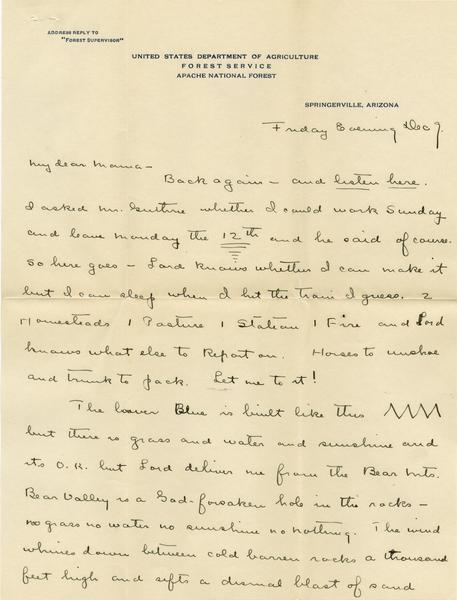 ADDRESS REPLY TO
"FOREST SUPERVISOR"
UNITED STATES DEPARTMENT OF AGRICULTURE
FOREST SERVICE
APACHE NATIONAL FOREST
SPRINGERVILLE, ARIZONA
Friday Evening Dec 9.
My dear Mama -
Back again - and listen here.
I asked Mr. Guthrie whether I could work Sunday
and leave Monday the 12th and he said of course.
So here goes - Lord knows whether I can make it
but I can sleep when I hit the train I guess. 2
Homesteads 1 Pasture 1 Station 1 Fire and Lord
knows what else to Report on. Horses to unshoe
and trunk to pack. Let me to it!
The lower Blue is built like this
but there is grass and water and sunshine and
its O.K. but Lord deliver me from the Bear Mts.
Bear Valley is a God-forsaken hole in the rocks -
no grass no water no sunshine no nothing. The wind
whines down between cold barren rocks a thousand
feet high and sifts a dismal blast of sand